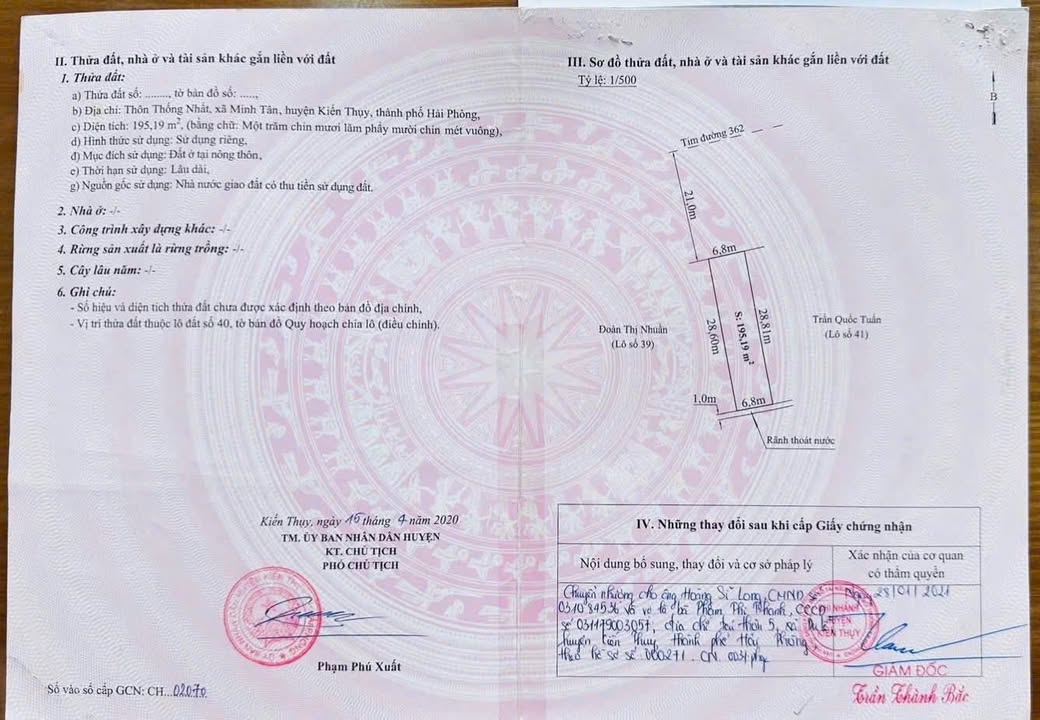 II. Thửa đất, nhà ở và tài sản khác gắn liền với đất
1. Thửa đất:
a) Thửa đất số: ........, tờ bản đồ số: .....,
b) Địa chỉ: Thôn Thống Nhất, xã Minh Tân, huyện Kiến Thụy, thành phố Hải Phòng,
c) Diện tích: 195,19 m², (bằng chữ: Một trăm chín mươi lăm phẩy mười chín mét vuông),
d) Hình thức sử dụng: Sử dụng riêng,
đ) Mục đích sử dụng: Đất ở tại nông thôn,
e) Thời hạn sử dụng: Lâu dài,
g) Nguồn gốc sử dụng: Nhà nước giao đất có thu tiền sử dụng đất.
2. Nhà ở: -/-
3. Công trình xây dựng khác: -/-
4. Rừng sản xuất là rừng trồng: -/-
5. Cây lâu năm: -/-
6. Ghi chú:
- Số hiệu và diện tích thửa đất chưa được xác định theo bản đồ địa chính,
- Vị trí thửa đất thuộc lô đất số 40, tờ bản đồ Quy hoạch chia lô (điều chỉnh).
Kiến Thụy, ngày 15 tháng 4 năm 2020
TM. ỦY BAN NHÂN DÂN HUYỆN
KT. CHỦ TỊCH
PHÓ CHỦ TỊCH
Phạm Phú Xuất
Số vào sổ cấp GCN: CH...02070
III. Sơ đồ thửa đất, nhà ở và tài sản khác gắn liền với đất
Tỷ lệ: 1/500
B
Tim đường 362
21,0m
6,8m
28,60m
S: 195,19 m²
28,81m
Đoàn Thị Nhuần
(Lô số 39)
Trần Quốc Tuấn
(Lô số 41)
1,0m
6,8m
Rãnh thoát nước
IV. Những thay đổi sau khi cấp Giấy chứng nhận
Nội dung bổ sung, thay đổi và cơ sở pháp lý
Xác nhận của cơ quan
có thẩm quyền
Chuyển nhượng cho ông Hoàng Sĩ Long, CMND
và vợ là bà Phạm Thị Khanh, CCCD
số 031149003057, địa chỉ tại thôn 5, xã
huyện Kiến Thụy thành phố Hải Phòng
theo hồ sơ số 000271. CN.
Ngày 28/01/2021
CHI NHÁNH
HUYỆN
KIẾN THỤY
GIÁM ĐỐC
Trần Thành Bắc